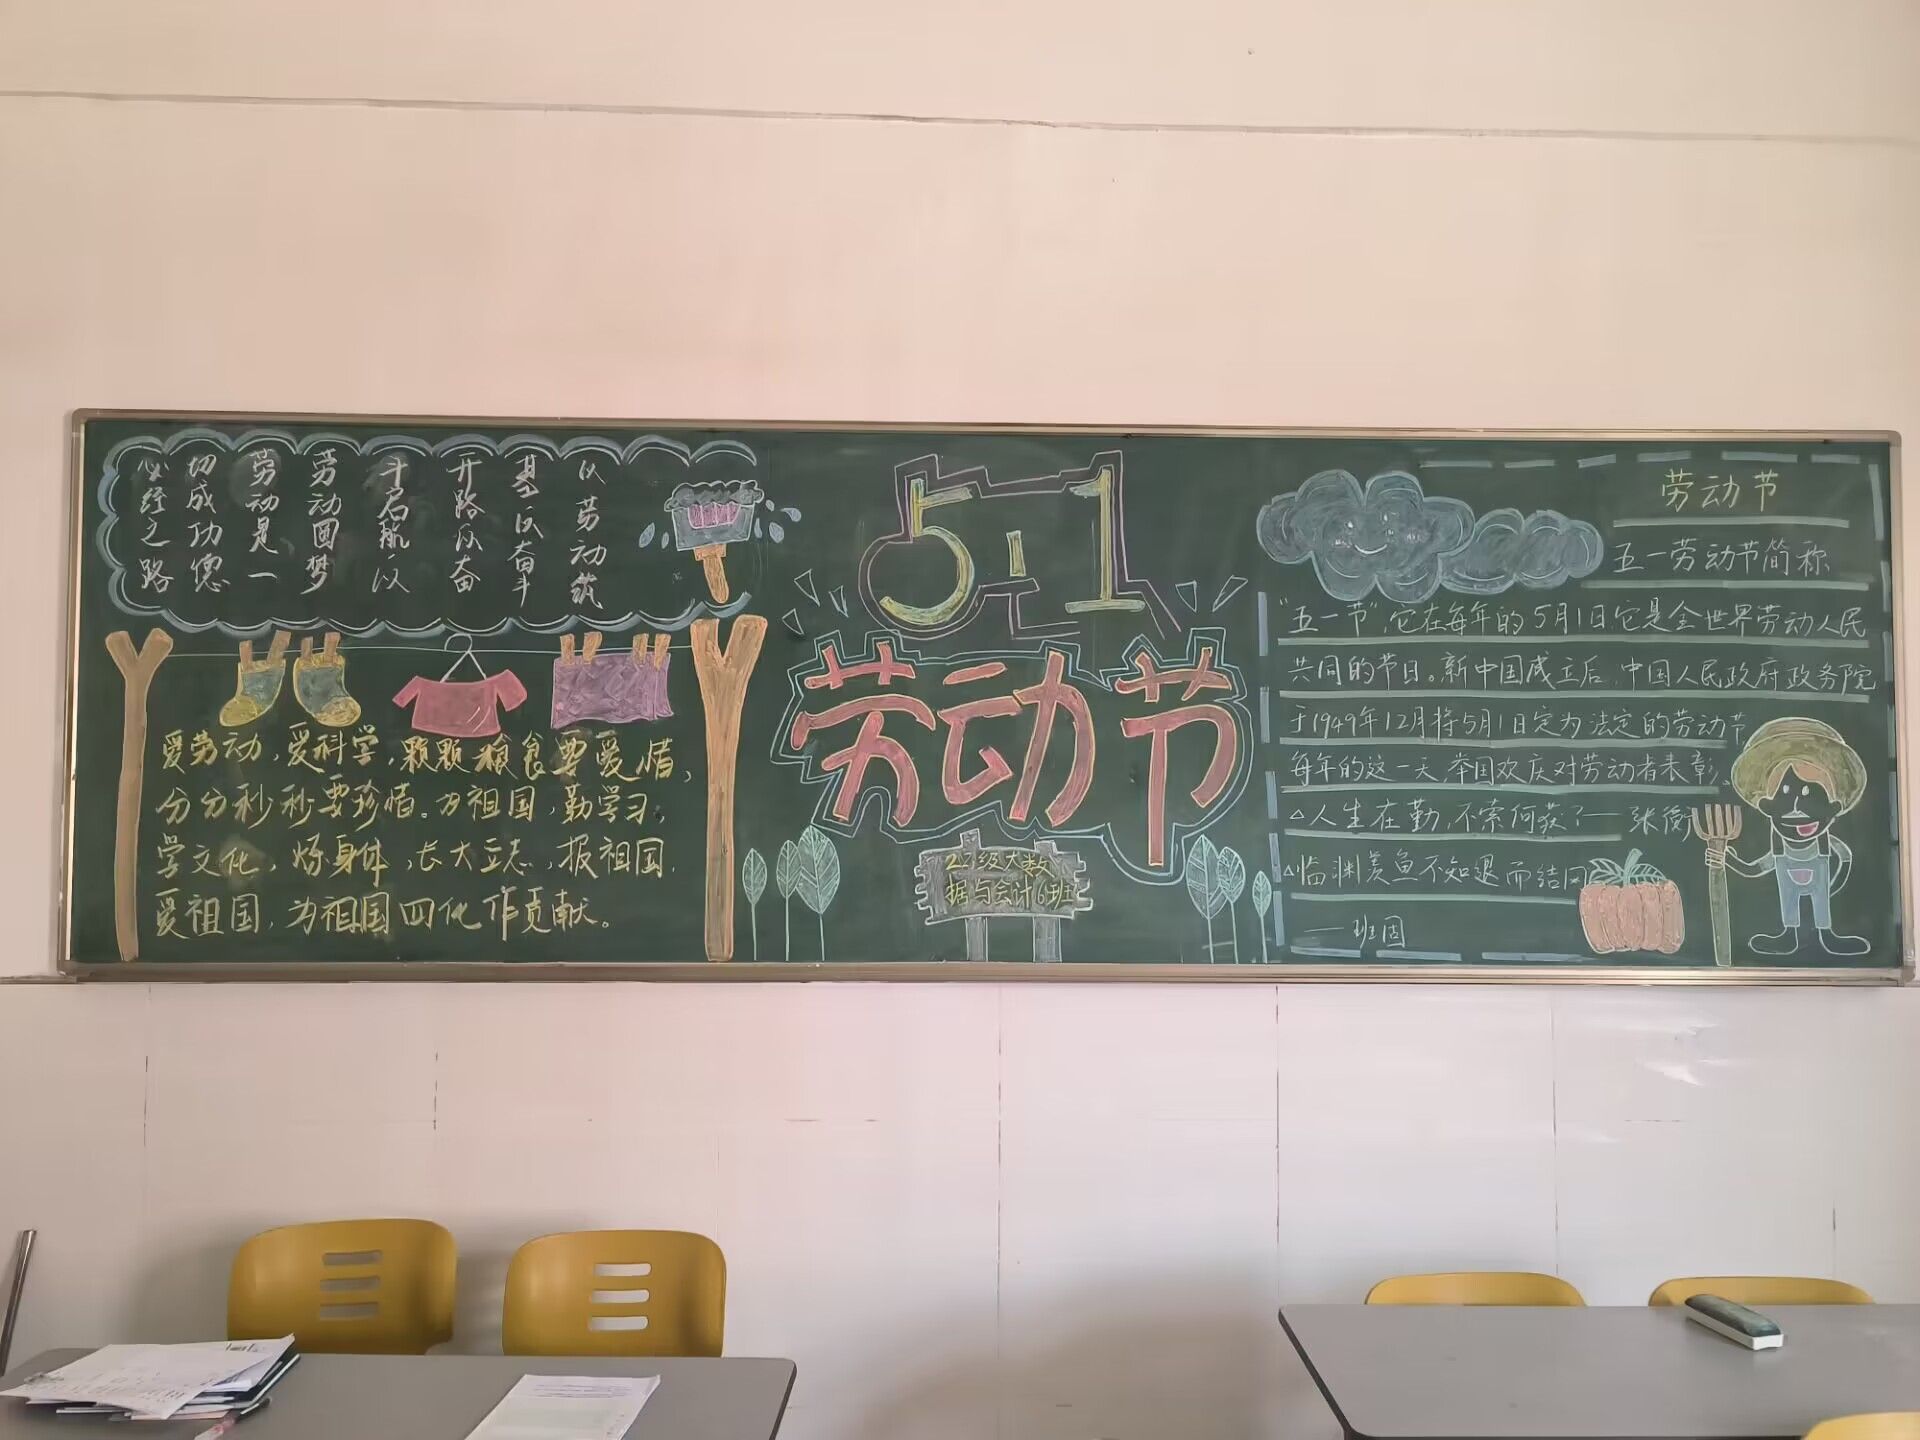 以劳动筑
基以奋斗
开路以奋
斗启航以
劳动圆梦
劳动是一
切成功德
必经之路
爱劳动，爱科学，颗颗粮食要爱惜，
分分秒秒要珍惜。为祖国，勤学习；
学文化，炼身体，长大立志，报祖国，
爱祖国，为祖国四化作贡献。
5·1
劳动节
22级大数
据与会计6班
劳动节
五一劳动节简称
“五一节”，它在每年的5月1日它是全世界劳动人民
共同的节日。新中国成立后，中国人民政府政务院
于1949年12月将5月1日定为法定的劳动节
每年的这一天举国欢庆对劳动者表彰。
△人生在勤，不索何获？—张衡
△临渊羡鱼不如退而结网
——班固